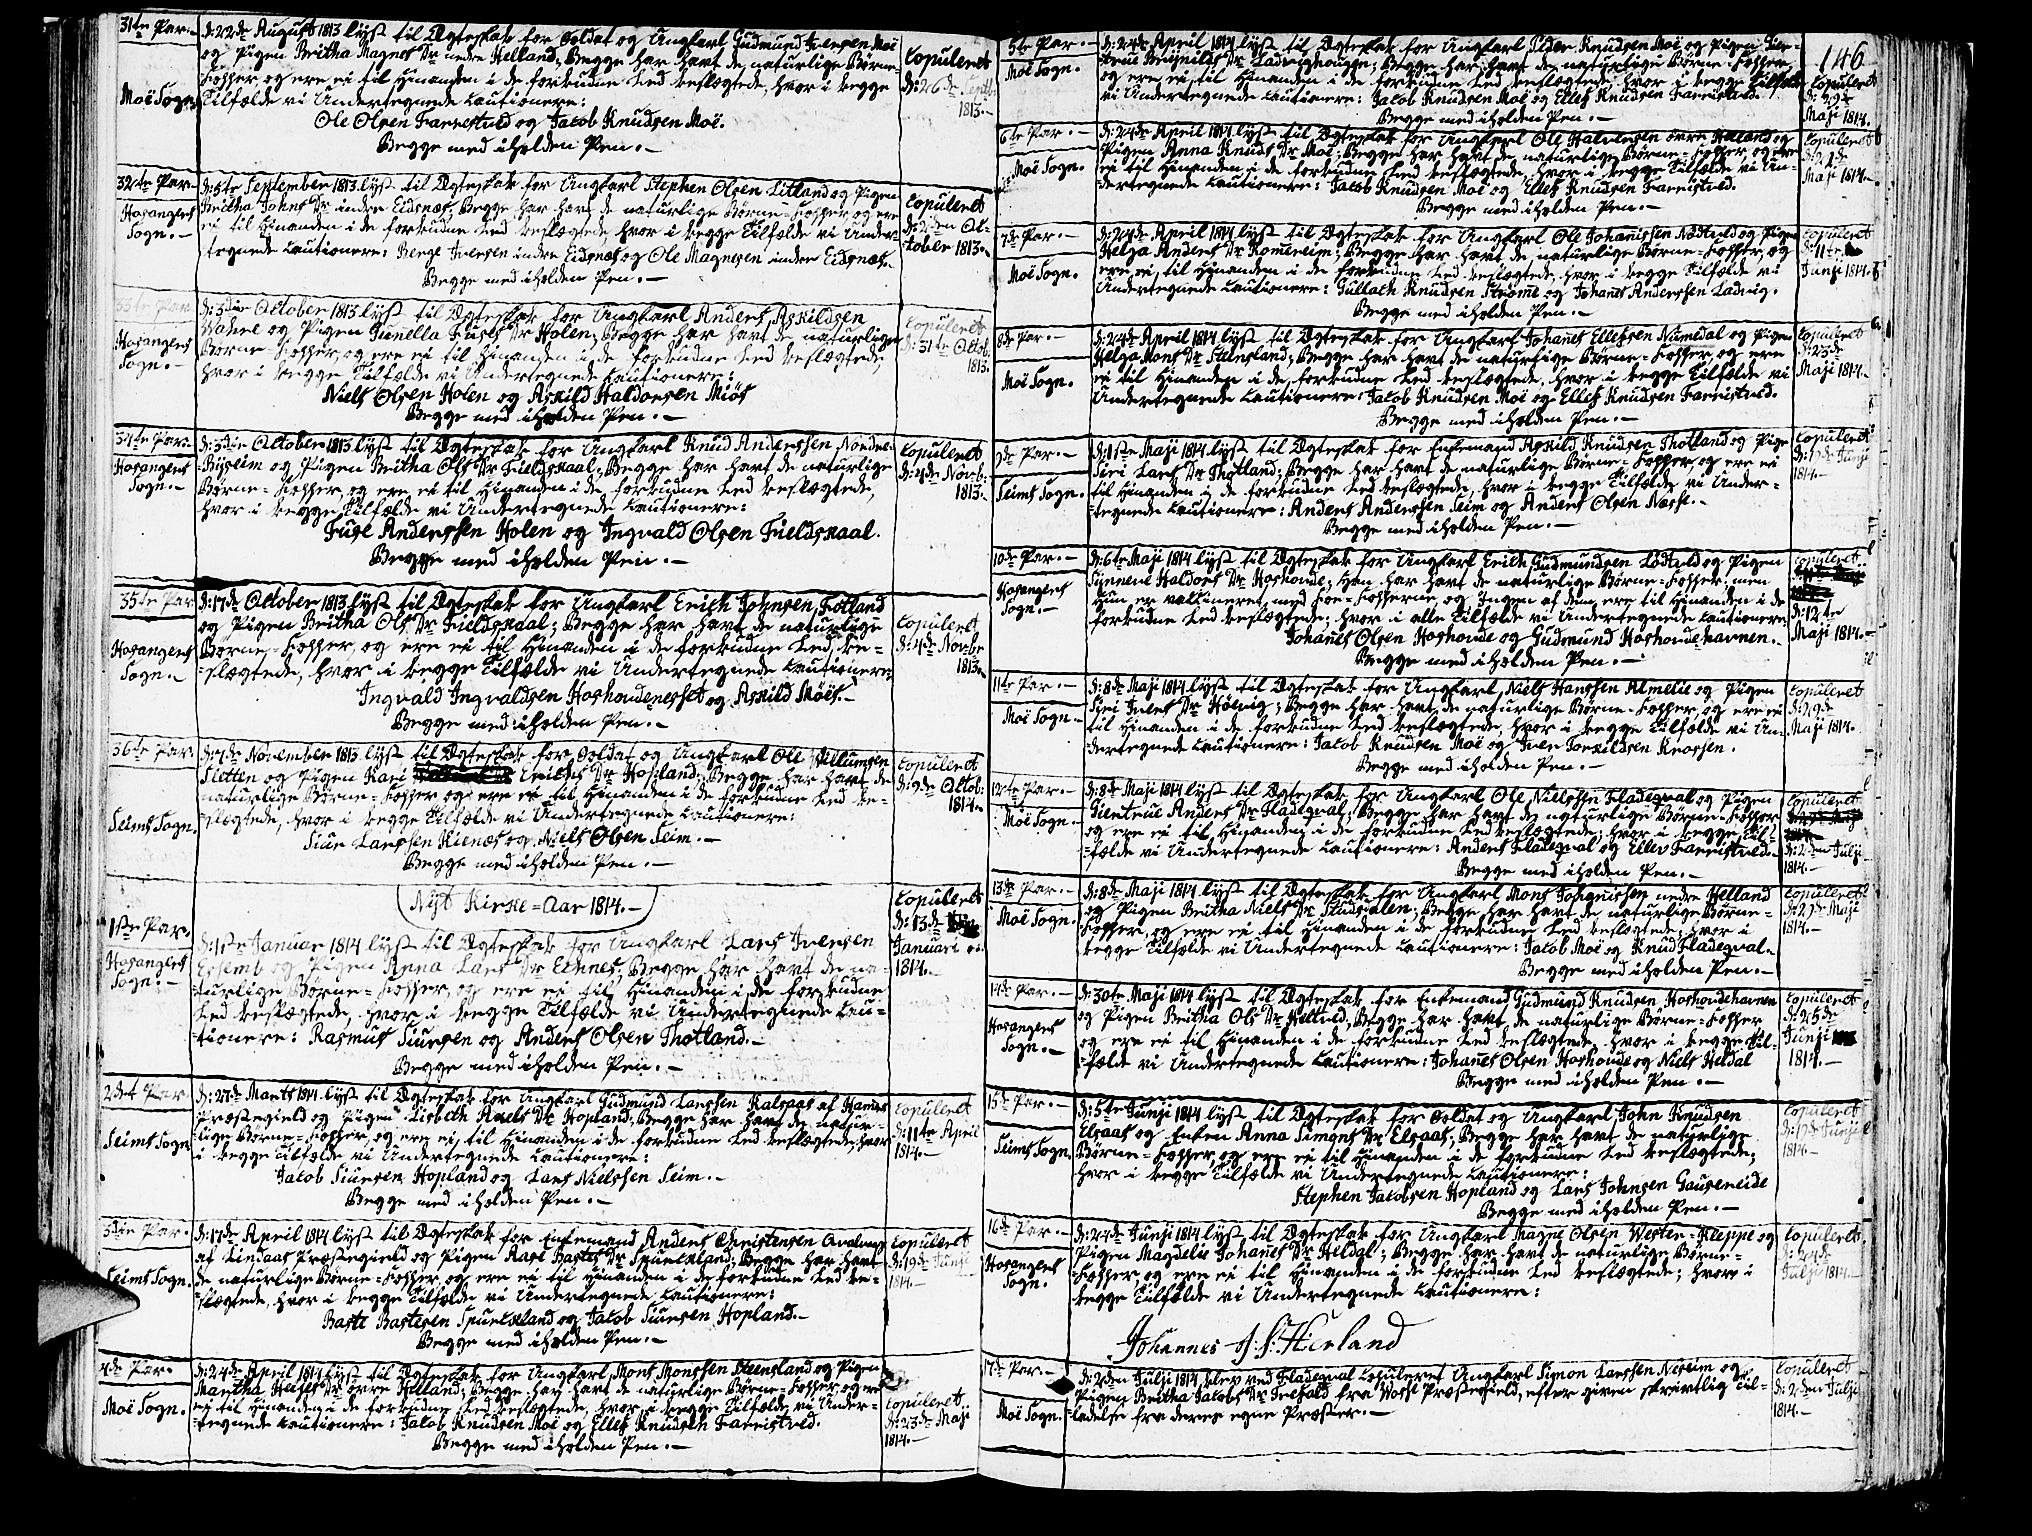 31te Par.
Moë Sogn.
d: 22de August 1813 lyst til Ægteskab for Soldat og Ungkarl Gudmund Iversen Moë
og Pigen Britha Magnes Dr. nedre Helland; Begge har havt de naturlige Børne-
Kopper og ere ei til Hinanden i de forbudne Led beslægtede, hvor i begge
Tilfælde vi Undertegnede Cautionere:
Ole Olsen Farrestved og Jacob Knudsen Moë.
Begge med iholden Pen.
Copuleret
d: 26de Septb.
1813.
32te Par
Hosangers
Sogn.
d: 5te September 1813 lyst til Ægteskab for Ungkarl Stephen Olsen Litland og Pigen
Britha Johns Dr. indre Eidsnæs; Begge har havt de naturlige Børne-Kopper, og ere
ei til Hinanden i de forbudne Led beslægtede, hvor i begge Tilfælde vi Under-
tegnede Cautionere: Berge Iversen indre Eidsnæs og Ole Magnesen indre Eidsnæs.
Begge med iholden Pen.
Copuleret
d: 2den Oc-
tober 1813.
33te Par
Hosangers
Sogn.
d: 3die October 1813 lyst til Ægteskab for Ungkarl Anders Askildsen
og Pigen Gunella Fuses Dr. Holen; Begge har havt de naturlige
Børne-Kopper, og ere ei til Hinanden i de forbudne Led beslægtede,
hvor i begge Tilfælde vi Undertegnede Cautionere:
Niels Olsen Holen og Askild Haldorsen Miøs
Begge med iholden Pen.
Copuleret
d: 31te Octob.
1813.
34te Par.
Hosangers
Sogn.
d: 3die October 1813 lyst til Ægteskab for Ungkarl Knud Anderssen Nordre-
Ryseim og Pigen Britha Ols Dr. Fieldskaal; Begge har havt de naturlige
Børne-Kopper, og ere ei til Hinanden i de forbudne Led beslægtede,
hvor i begge Tilfælde vi Undertegnede Cautionere:
Fuse Anderssen Holen og Ingvald Olsen Fieldskaal.
Begge med iholden Pen.
Copuleret
d: 4de Novb.
1813.
35te Par
Hosangers
Sogn.
d: 17de October 1813 lyst til Ægteskab for Ungkarl Erich Johnsen Fotland
og Pigen Britha Ols Dr. Fieldskaal; Begge har havt de naturlige
Børne-Kopper, og ere ei til Hinanden i de forbudne Led be-
slægtede, hvor i begge Tilfælde vi Undertegnede Cautionere:
Ingvald Ingvaldsen Hoshovdenesset og Askild Møes.
Begge med iholden Pen.
Copuleret
d: 4de Novbr
1813.
36te Par
Seims Sogn.
d: 7de November 1813 lyst til Ægteskab for Soldat og Ungkarl Ole Willumsen
Sletten og Pigen Kari Erichs Dr. Hopland; Begge har havt de
naturlige Børne-Kopper og ere ei til Hinanden i de forbudne Led be-
slægtede, hvor i begge Tilfælde vi Undertegnede Cautionere:
Siur Larssen Hienæs og Niels Olsen Seim.
Begge med iholden Pen.
Copuleret
d: 9de Octob.
1814.
Nyt Kirke-Aar 1814.
1ste Par.
Hosangers
Sogn.
d: 1ste Januar 1814 lyst til Ægteskab for Ungkarl Lars Iversen
og Pigen Anna Lars Dr. Echnes; Begge har havt de na-
turlige Børne-Kopper, og ere ei til Hinanden i de forbudne
Led beslægtede, hvor i begge Tilfælde vi Undertegnede Cau-
tionere: Rasmus Siursen og Anders Olsen Thotland.
Begge med iholden Pen.
Copuleret
d: 13de
Januari
1814.
2det Par
Seims Sogn
d: 27de Marts 1814 lyst til Ægteskab for Ungkarl Gudmund Larssen Kalsaas af Hammers
Præstegield og Pigen Lisbeth Axels Dr. Hopland; Begge har havt de natur-
lige Børne-Kopper, og ere ei til Hinanden i de forbudne Led beslægtede, hvor
i begge Tilfælde vi Undertegnede Cautionere:
Jacob Siursen Hopland og Lars Nielssen Seim.
Begge med iholden Pen.
Copuleret
d: 11te April
1814.
3die Par.
Seims Sogn.
d: 17de April 1814 lyst til Ægteskab for Enkemand Anders Christensen
af Lindaas Præstegield og Pigen Aase Bastes Dr. Spurkeland; Begge har havt
de naturlige Børne-Kopper, og ere ei til Hinanden i de forbudne Led be-
slægtede, hvor i begge Tilfælde vi Undertegnede Cautionere:
Baste Bastesen Spurkeland og Jacob Siursen Hopland.
Begge med iholden Pen.
Copuleret
d: 19de Junii
1814.
4de Par.
Moë Sogn.
d: 24de April 1814 lyst til Ægteskab for Ungkarl Mons Monssen Steensland og Pigen
Martha Helges Dr. øvre Helland; Begge har havt de naturlige Børne-Kopper og ere
ei til Hinanden i de forbudne Led beslægtede, hvor i begge Tilfælde vi Under-
tegnede Cautionere: Jacob Knudsen Moë og Ellef Knudsen Farristved.
Begge med iholden Pen.
Copuleret
d: 23de Maji
1814.
146
5te Par.
Moë Sogn.
d: 24de April 1814 lyst til Ægteskab for Ungkarl Peder Knudsen Moë og Pigen
Brynilds Dr. Ladvighougen; Begge har havt de naturlige Børne-Kopper
og ere ei til Hinanden i de forbudne Led beslægtede, hvor i begge Tilfælde
vi Undertegnede Cautionere: Jacob Knudsen Moë og Ellef Knudsen Farristved.
Begge med iholden Pen.
Copuleret
d: 29de
Maji 1814.
6te Par.
Moë Sogn.
d: 24de April 1814 lyst til Ægteskab for Ungkarl Ole Halvorsen øvre Helland og
Pigen Anna Knuds Dr. Moë; Begge har havt de naturlige Børne-Kopper, og ere
ei til Hinanden i de forbudne Led beslægtede, hvor i begge Tilfælde vi Un-
dertegnede Cautionere: Jacob Knudsen Moë og Ellef Knudsen Farristved.
Begge med iholden Pen.
Copuleret
Maji 1814.
7de Par.
Moë Sogn.
d: 24de April 1814 lyst til Ægteskab for Ungkarl Ole Johannissen Nødtved og Pigen
Helga Anders Dr. Romereim; Begge har havt de naturlige Børne-Kopper, og
ere ei til Hinanden i de forbudne Led beslægtede, hvor i begge Tilfælde vi
Undertegnede Cautionere: Gullach Knudsen Strøme og Johannes Anderssen Ladvig.
Begge med iholden Pen.
Copuleret
d: 11te
Junji 1814.
8de Par.
Moë Sogn.
d: 24de April 1814 lyst til Ægteskab for Ungkarl Johannes Ellefsen Numedal og Pigen
Helga Mons Dr. Steensland; Begge har havt de naturlige Børne-Kopper, og ere
ei til Hinanden i de forbudne Led beslægtede, hvor i begge Tilfælde vi
Undertegnede Cautionere: Jacob Knudsen Moë og Ellef Knudsen Farristved.
Begge med iholden Pen.
Copuleret
d: 23de
Maji 1814.
9de Par.
Seims Sogn.
d: 1ste Maji 1814 lyst til Ægteskab for Enkemand Askild Knudsen Thotland og Pige
Siri Lars Dr. Thotland; Begge har havt de naturlige Børne-Kopper, og ere ei
til Hinanden i de forbudne Led beslægtede, hvor i begge Tilfælde vi Under-
tegnede Cautionere: Anders Anderssen Seim og Anders Olsen Næsse.
Begge med iholden Pen.
Copuleret
d: 19de Junji
1814.
10de Par.
Hosangers
Sogn.
d: 6te Maji 1814 lyst til Ægteskab for Ungkarl Erich Gudmundsen Lødtved og Pigen
Synneve Haldors Dr. Hoshovde; Han har havt de naturlige Børne-Kopper, men
Hun er vaccineret med Koe-Kopperne, og Ingen af dem ere til Hinanden i de
forbudne Led beslægtede; hvor i alle Tilfælde vi Undertegnede Cautionere
Johannes Olsen Hoshovde og Gudmund Hoshovdehavnen.
Begge med iholden Pen.
Copuleret
d: 12te
Maji 1814.
11te Par.
Moë Sogn.
d: 8de Maji 1814 lyst til Ægteskab for Ungkarl Niels Hanssen Almelie og Pigen
Siri Ivers Dr. Hølvig; Begge har havt de naturlige Børne-Kopper, og ere ei
til Hinanden i de forbudne Led beslægtede, hvor i begge Tilfælde vi Un-
dertegnede Cautionere: Jacob Knudsen Moë og Iver Torkildsen Knossen.
Begge med iholden Pen.
Copuleret
d: 29de
Maji 1814.
12te Par.
Moë Sogn.
d: 8de Maji 1814 lyst til Ægteskab for Ungkarl Ole Nielssen Fladeqval og Pigen
Gientrue Anders Dr. Fladeqval; Begge har havt de naturlige Børne-Kopper
og ere ei til Hinanden i de forbudne Led beslægtede, hvor i begge Til-
fælde vi Undertegnede Cautionere: Anders Fladeqval og Ellev Farristved.
Begge med iholden Pen.
Copuleret
d: 2den Julji
1814.
13de Par.
Moë Sogn.
d: 8de Maji 1814 lyst til Ægteskab for Ungkarl Mons Johannissen nedre Helland
og Pigen Britha Niels Dr. Studsdalen; Begge har havt de naturlige Børne-
Kopper, og ere ei til Hinanden i de forbudne Led beslægtede, hvor i
begge Tilfælde vi Undertegnede Cautionere: Jacob Moë og Knud Fladeqval.
Begge med iholden Pen.
Copuleret
d: 29de Maji
1814.
14de Par.
Hosangers
Sogn.
d: 30te Maji 1814 lyst til Ægteskab for Enkemand Gudmund Knudsen Hoshovdehavnen
og Pigen Britha Ols Dr. Heltved; Begge har havt de naturlige Børne-Kopper
og ere ei til Hinanden i de forbudne Led beslægtede, hvor i begge Til-
fælde vi Undertegnede Cautionere: Johannes Olsen Hoshovde og Niels Heldal
Begge med iholden Pen.
Copuleret
d: 25de
Junji
1814.
15de Par.
Seims Sogn.
d: 5te Junji 1814 lyst til Ægteskab for Soldat og Ungkarl John Knudsen
Elsaas og Enken Anna Simons Dr. Elsaas; Begge har havt de naturlige
Børne-Kopper, og ere ei til Hinanden i de forbudne Led beslægtede;
hvor i begge Tilfælde vi Undertegnede Cautionere:
Stephen Jacobsen Hopland og Lars Johnsen Gausereide
Begge med iholden Pen.
Copuleret
d: 19de Junji
1814.
16de Par.
Hosangers
Sogn.
d: 24de Junji 1814 lyst til Ægteskab for Ungkarl Magne Olsen Wester-Kleppe og
Pigen Magdelie Johannes Dr. Heldal; Begge har havt de naturlige Børne-
Kopper, og ere ei til Hinanden i de forbudne Led beslægtede; hvor i
begge Tilfælde vi Undertegnede Cautionere:
Johannes J. S. Herland
Copuleret
d: 24de
Julji 1814.
17de Par.
Moë Sogn.
d: 2den Julji 1814 blev ved Fladeqval Copuleret Ungkarl Simon Larssen Neseim og
Pigen Britha Jacobs Dr. Seefald fra Voss Præstegield, efter given skrivtlig Til-
ladelse fra deres egne Præster.
Copuleret
d: 2den Julji
1814.